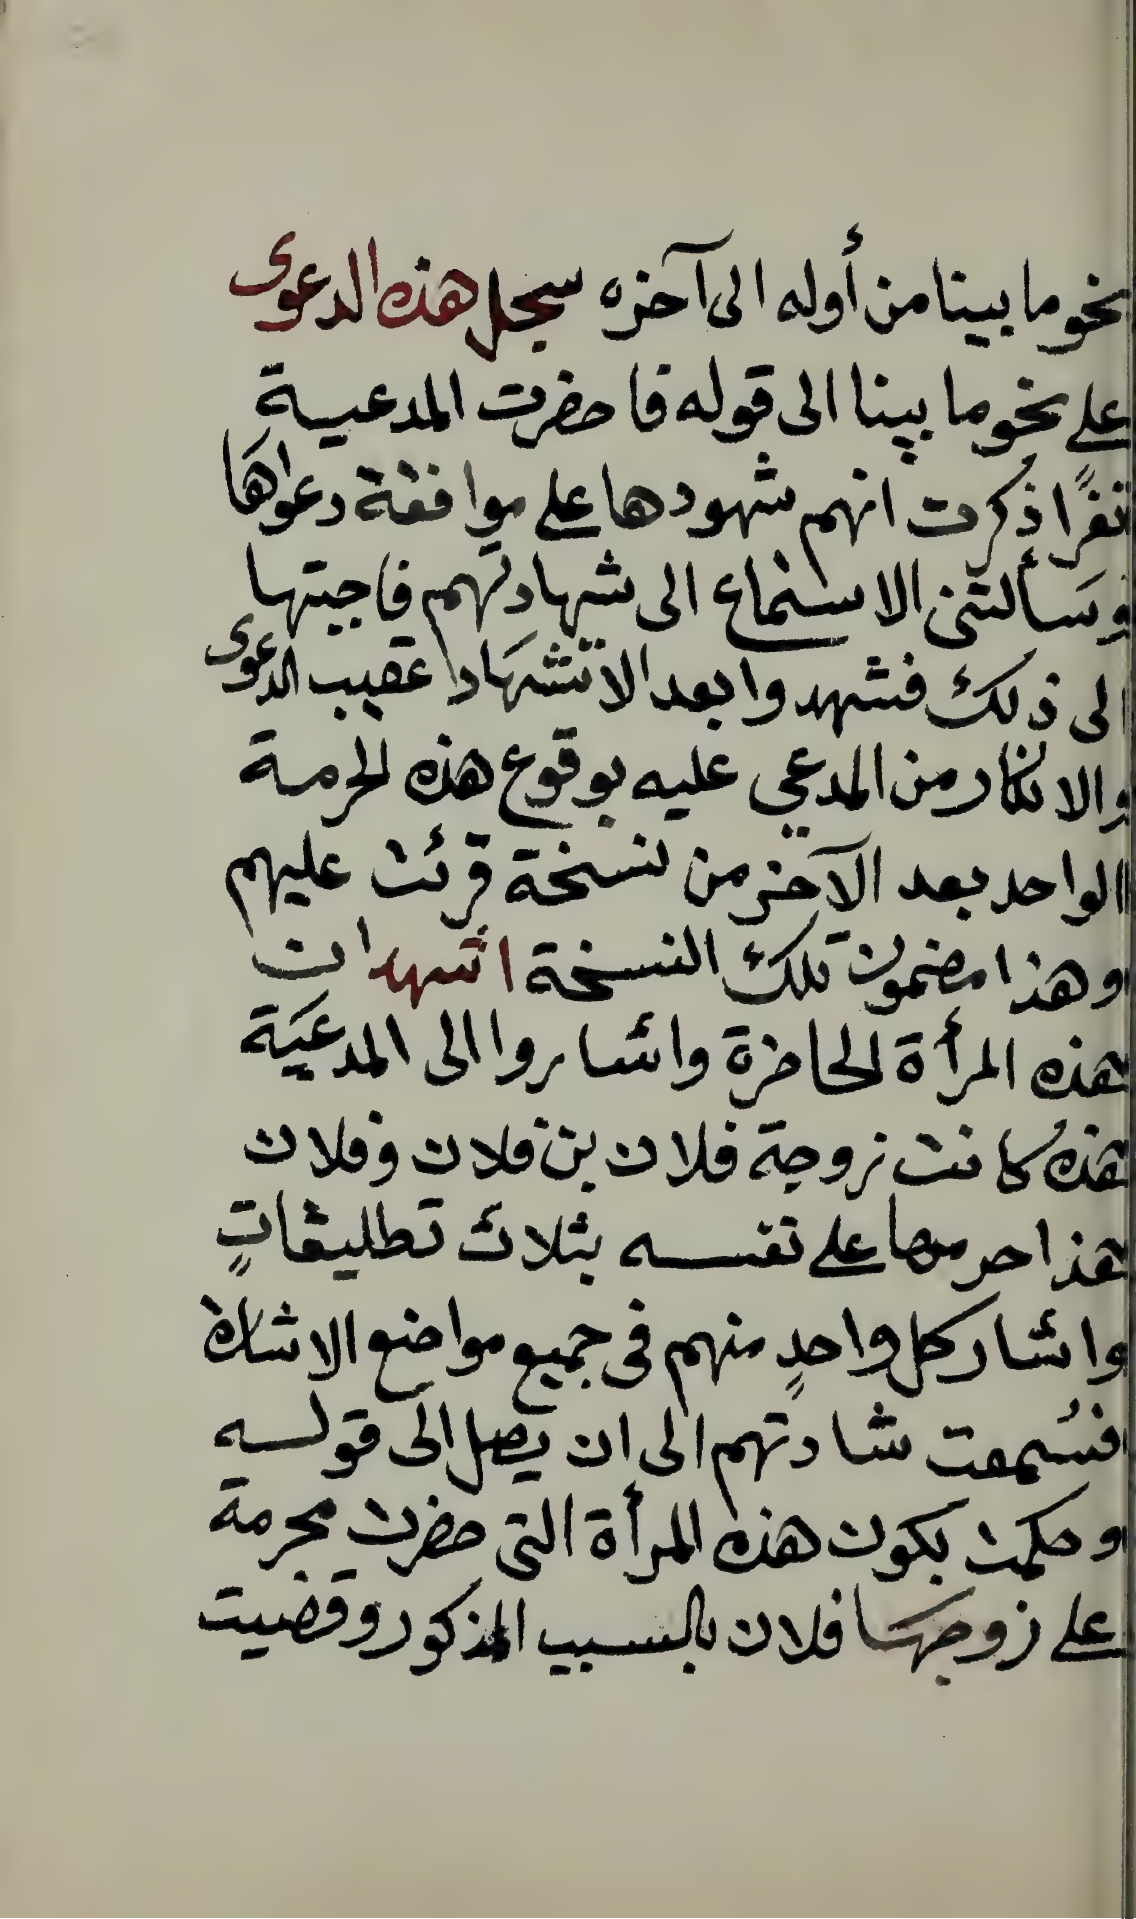 نحو ما بينا من أوله الى آخره سجل هذه الدعوى
على نحو ما بينا الى قوله فاحضرت المدعية
نفرًا ذكرت انهم شهودها على موافقة دعواها
وسألتنى الاستماع الى شهادتهم فاجبتها
الى ذلك فشهدوا بعد الاتشهاد عقيب الدعوى
والانكار من المدعى عليه بوقوع هذه الحرمة
الواحد بعد الآخر من نسخة قرئت عليهم
وهذا مضمون تلك النسخة اشهد ان
هذه المرأة الحاضرة واشاروا الى المدعية
هذه كانت زوجة فلان بن فلان وفلان
هذا حرمها على نفسه بثلاث تطليقاتٍ
واشار كل واحدٍ منهم فى جميع مواضع الاشارة
فسُمعت شادتهم الى ان يصل الى قوله
وحكمت بكون هذه المرأة التى حضرت محرمة
على زوجها فلان بالسبب المذكور وقضيت